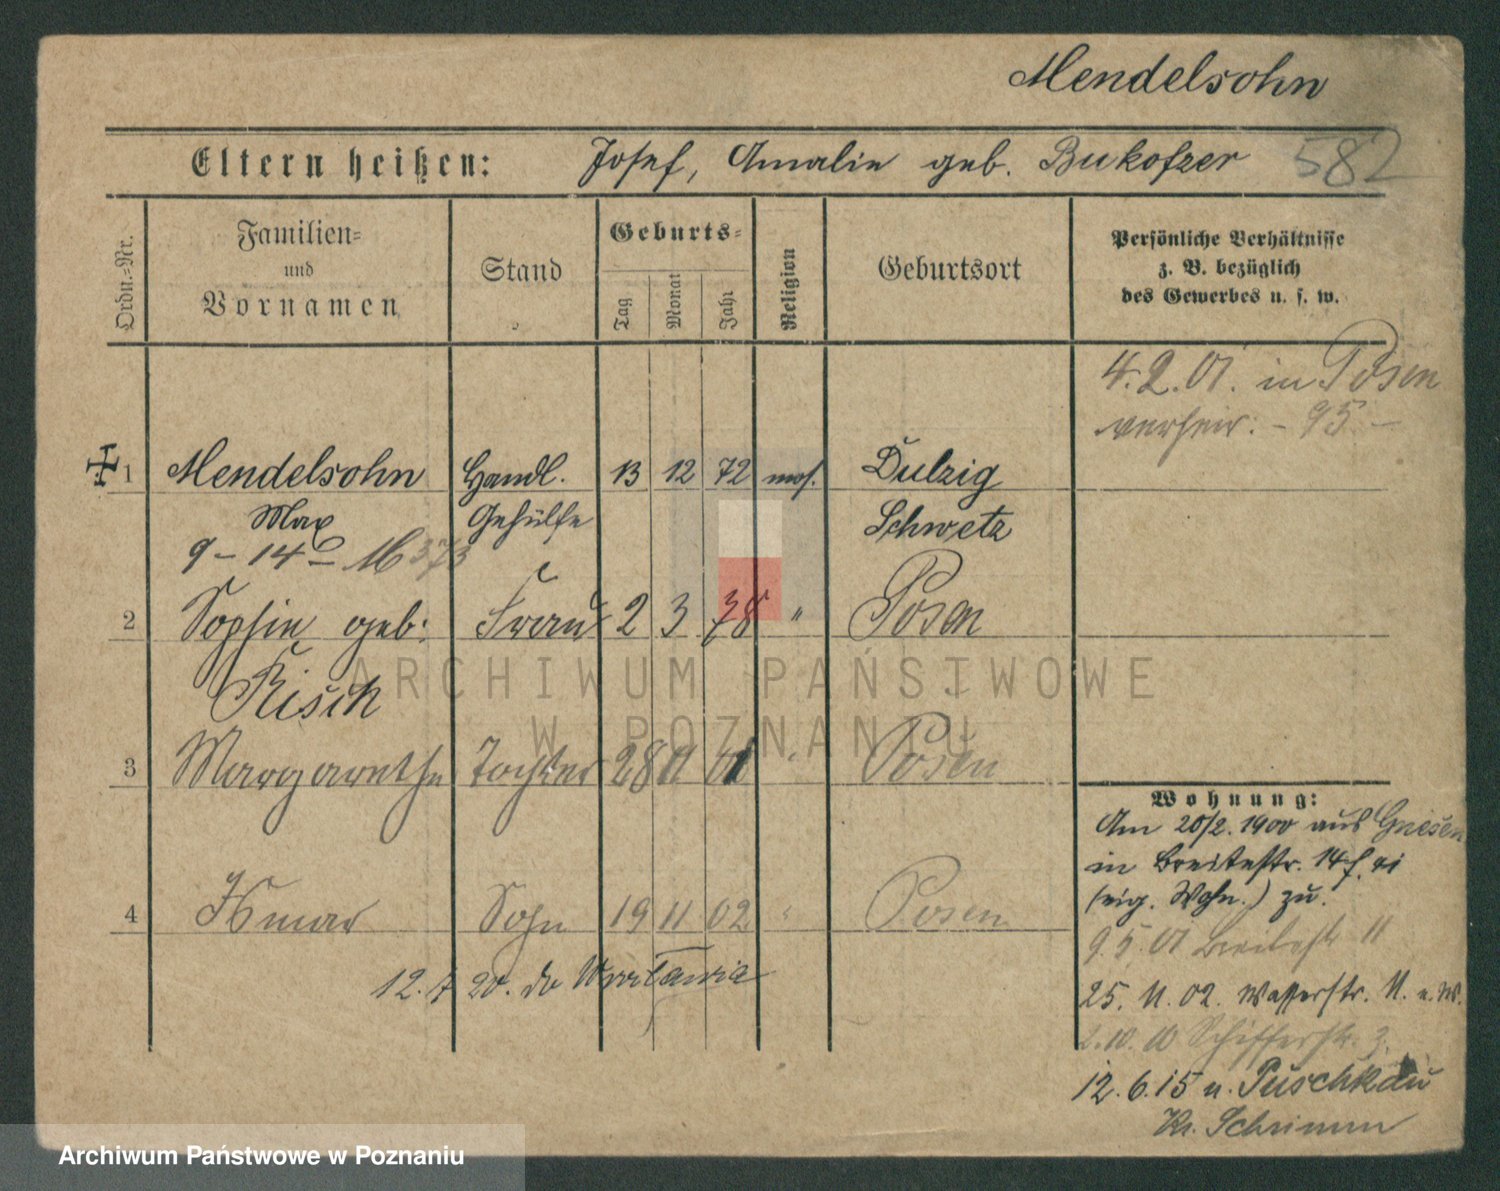 Mendelsohn
Eltern heißen: Josef, Amalie geb. Bukofzer 582
Ordn.-Nr.
Familien-
und
Vornamen
Stand
Geburts-
Tag
Monat
Jahr
Religion
Geburtsort
Persönliche Verhältnisse
z. B. bezüglich
des Gewerbes u. s. w.
4.2.01. in Posen
verheir. - 95 -
1 Mendelsohn Handl. 13 12 72 mos. Dulzig
Max Gehülfe Schwetz
9 - 14
2 Sophie geb. Frau 2 3 78 " Posen
Kisch
3 Margarethe Tochter 28 11 01 " Posen
4 Ismar Sohn 19 11 02 " Posen
12.7 20. do
Wohnung:
Am 20/2. 1900 aus Gnesen
in Breitestr. 14
(eig. Wohn.) zu.
9.5.01 Breitestr 11
25. 11. 02. Wasserstr. 11. u. W.
Schifferstr. 3.
12.6.15 n. Puschkau
Kr. Schrimm
ARCHIWUM PAŃSTWOWE
W POZNANIU
Archiwum Państwowe w Poznaniu